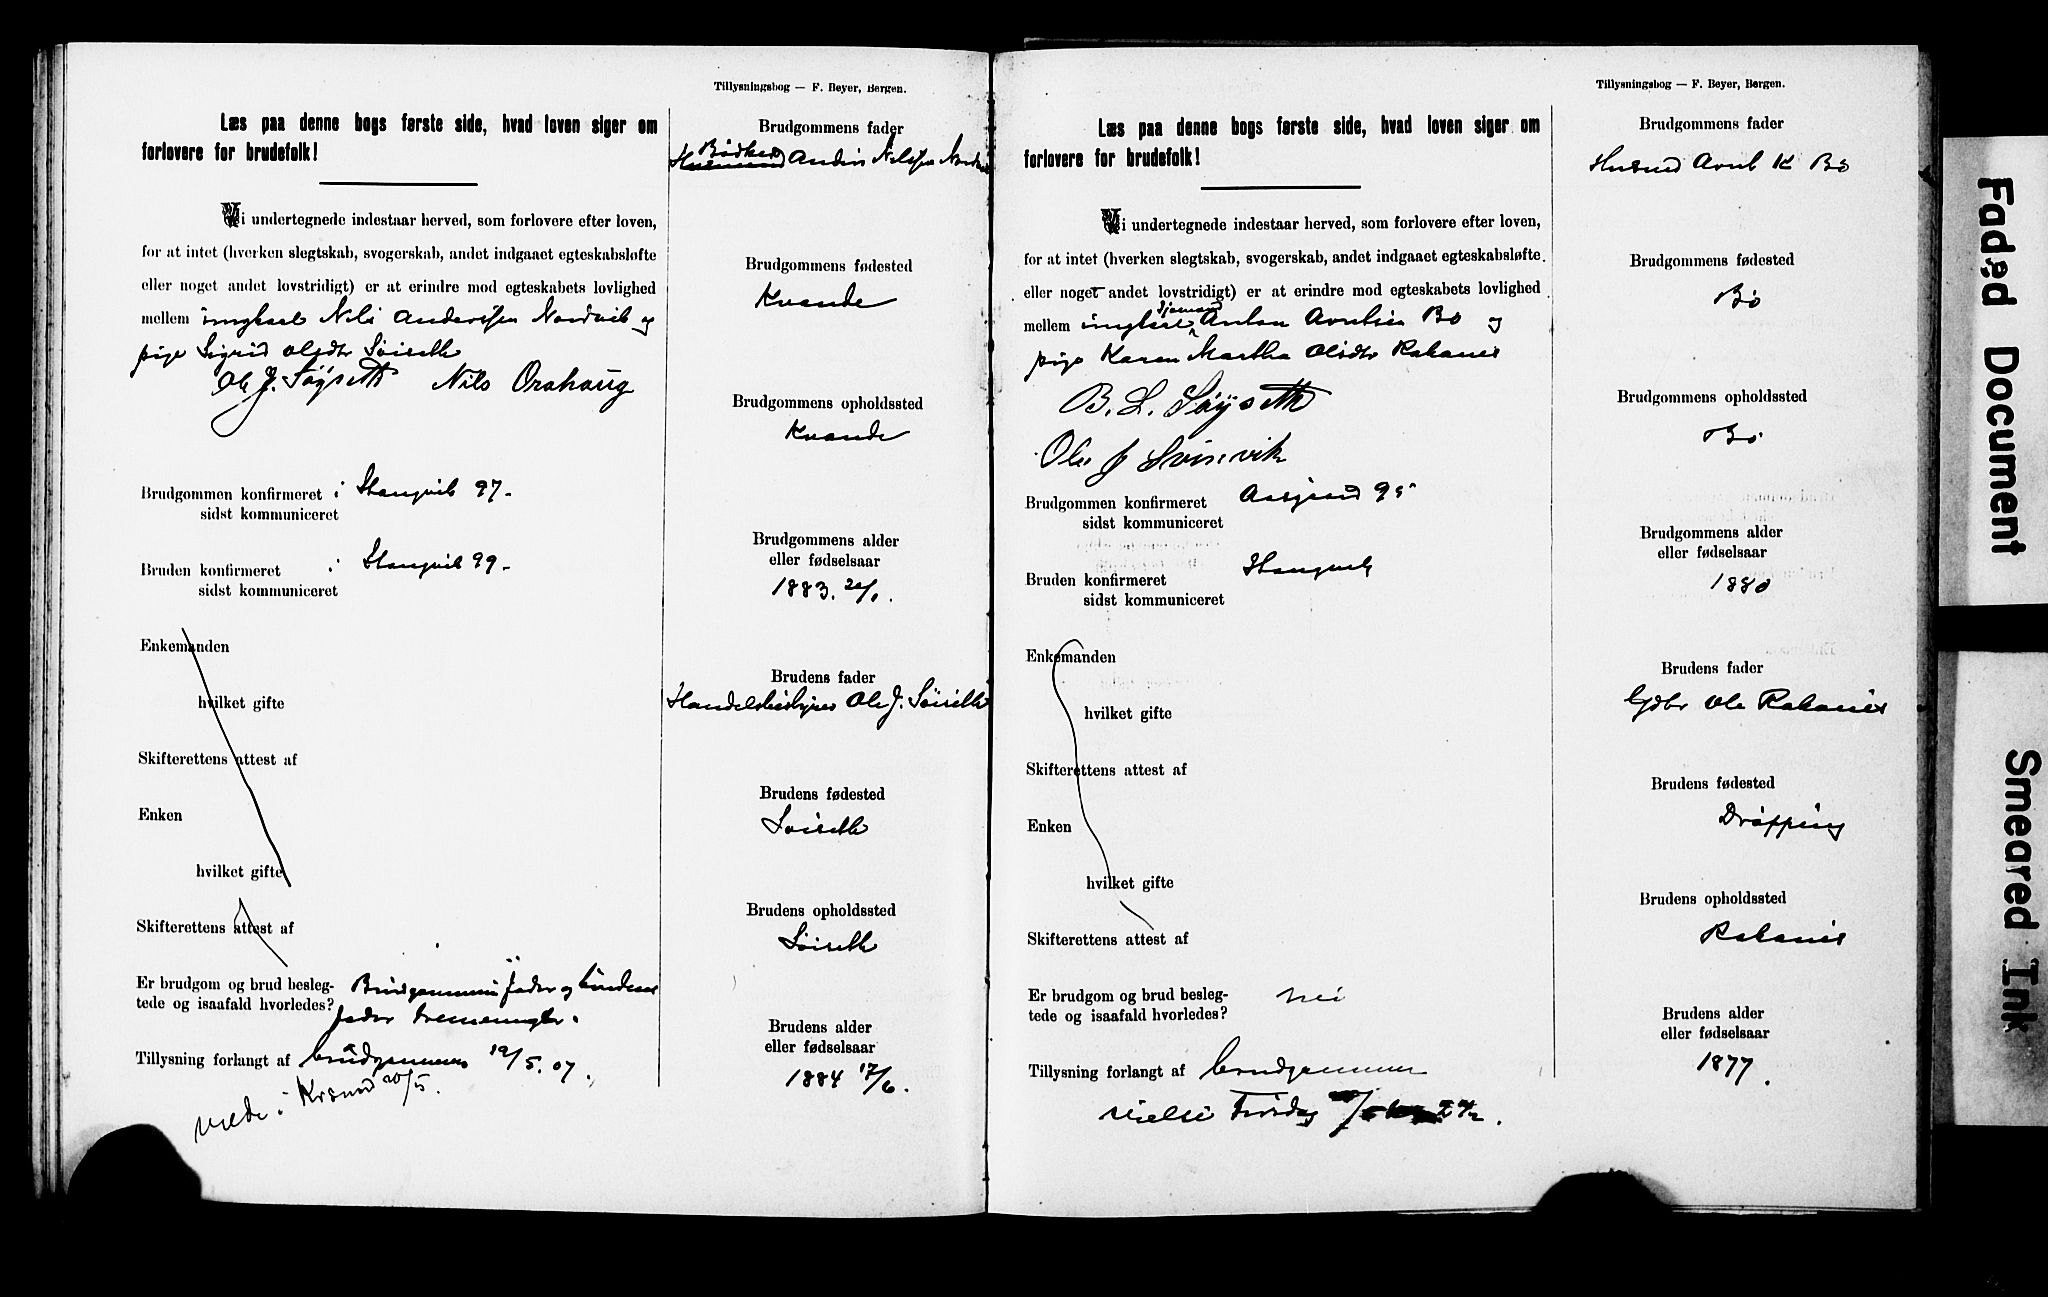 Tillysningsbog — F. Beyer, Bergen.
Læs paa denne bogs første side, hvad loven siger om
forlovere for brudefolk!
Vi undertegnede indestaar herved, som forlovere efter loven,
for at intet (hverken slegtskab, svogerskab, andet indgaaet egteskabsløfte
eller noget andet lovstridigt) er at erindre mod egteskabets lovlighed
mellem ungkarl Nils Anderssen Nordvik og
pige Sigrid Olsdtr Söiseth
Ole J. Søyseth Nils Orahaug
Brudgommen konfirmeret i Stangvik 97 -
sidst kommuniceret
Bruden konfirmeret i Stangvik 99 -
sidst kommuniceret
Enkemanden
hvilket gifte
Skifterettens attest af
Enken
hvilket gifte
Skifterettens attest af
Er brudgom og brud besleg- Brudgommens fader og brudens
tede og isaafald hvorledes? fader tremenninger.
Tillysning forlangt af brudgommen 19/5.07.
viede i Krsund 20/5.
Brudgommens fader
Bødker
Husmand Anders Nilssen Nordvik
Brudgommens fødested
Kvande
Brudgommens opholdssted
Kvande
Brudgommens alder
eller fødselsaar
1883. 20/1.
Brudens fader
Handelsbestyrer Ole J. Söiseth
Brudens fødested
Söiseth
Brudens opholdssted
Söiseth
Brudens alder
eller fødselsaar
1884 17/6.
Tillysningsbog — F. Beyer, Bergen.
Læs paa denne bogs første side, hvad loven siger om
forlovere for brudefolk!
Vi undertegnede indestaar herved, som forlovere efter loven,
for at intet (hverken slegtskab, svogerskab, andet indgaaet egteskabsløfte
eller noget andet lovstridigt) er at erindre mod egteskabets lovlighed
Sjømand
mellem ungkarl Anton Arntsen Bö og
pige Karen Martha Olsdtr Rakanes
B. L. Søyseth
Ole J Svinvik
Brudgommen konfirmeret Aasgaard 95
sidst kommuniceret
Bruden konfirmeret Stangvik
sidst kommuniceret
Enkemanden
hvilket gifte
Skifterettens attest af
Enken
hvilket gifte
Skifterettens attest af
Er brudgom og brud besleg- nei
tede og isaafald hvorledes?
Tillysning forlangt af brudgommen
vielse Tirsdag
Brudgommens fader
Husmd Arnt K Bö
Brudgommens fødested
Bö
Brudgommens opholdssted
Bö
Brudgommens alder
eller fødselsaar
1880
Brudens fader
Gdbr Ole Rakanes
Brudens fødested
Drøpping
Brudens opholdssted
Rakanes
Brudens alder
eller fødselsaar
1877.
Faded Document
Smeared Ink